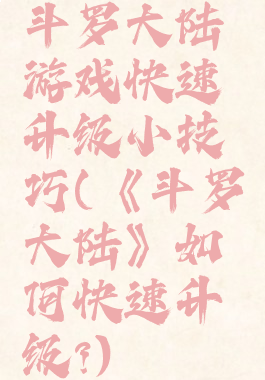 斗罗大陆
游戏快速
升级小技
巧(《斗罗
大陆》如
何快速升
级?)